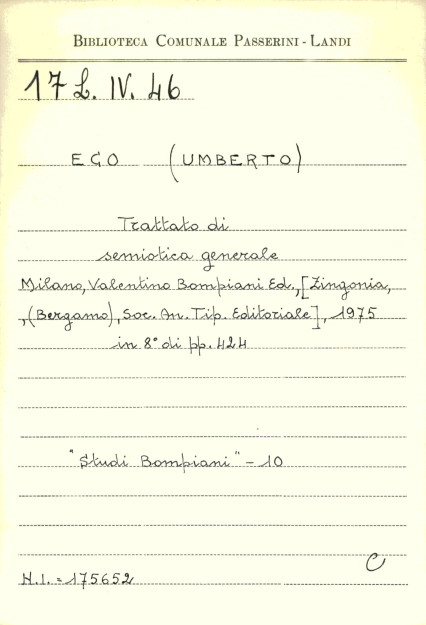 BIBLIOTECA COMUNALE PASSERINI - LANDI
17 L. IV. 46
ECO (UMBERTO)
Trattato di
semiotica generale
Milano, Valentino Bompiani Ed., [Zingonia,
,(Bergamo), Soc. An. Tip. Editoriale], 1975
in 8° di pp. 424
"Studi Bompiani" - 10
C
N.I. = 175652